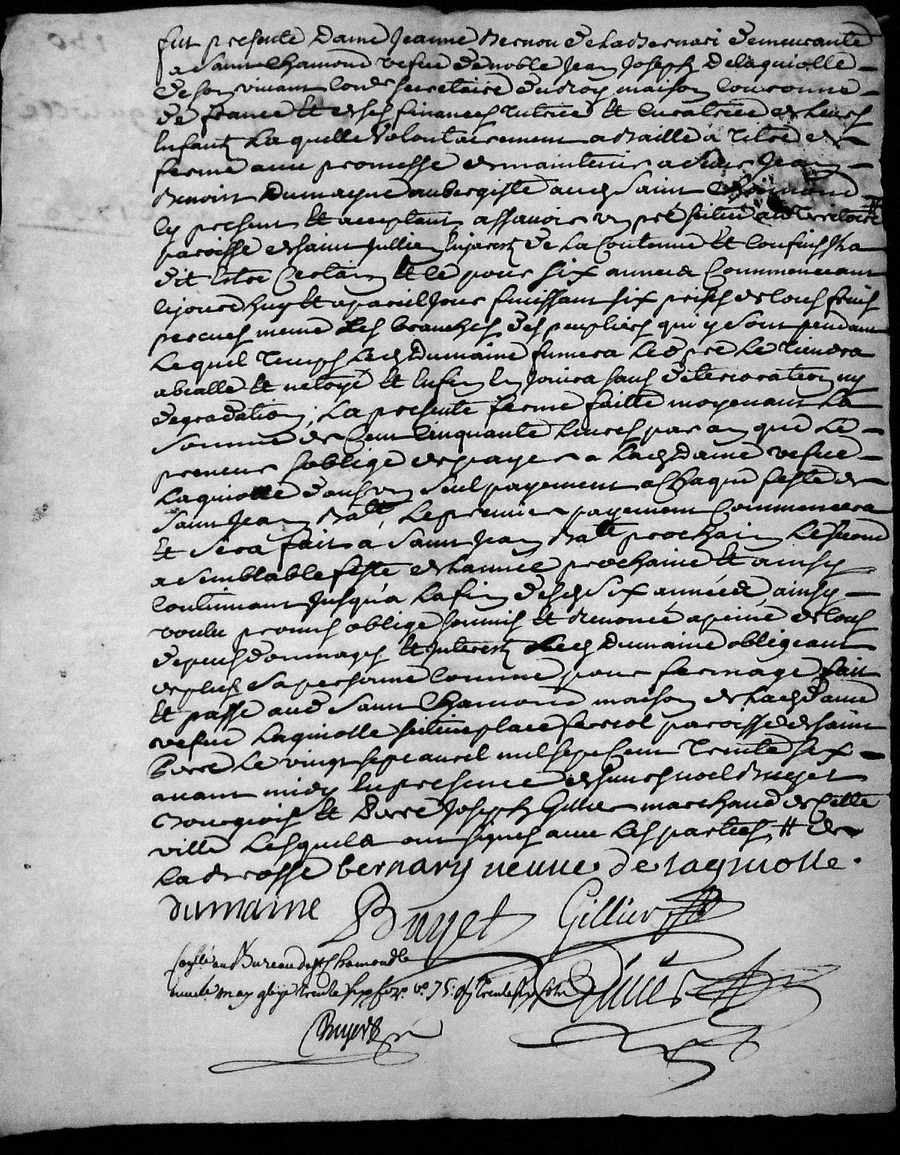 fut presente Dame Jeanne Bernou de la Bernari demeurante
a Saint Chamond vefue de noble Jean Joseph Delaquiolle
de son vivant secretaire du roy maison couronne
de france et de ses finances tutrice et curatrice de leurs
enfant laquelle volontairement a baillé a titre de
ferme avec promesse de maintenir a Sieur Jean
Benoist Dumayne aubergiste aud Saint Chamond
icy present et acceptant assavoir un pré situé au territoire
paroisse de saint Jullien de la
dit et ce pour six années commenceant
cejourdhuy et apareil jour finissant six prises de tous fruis
percues meme les branches des peupliers qui y sont pendant
lequel temps led Dumaine fumera led pré le tiendra
abialle et netoyé et enfin en jouira sans deterioration ny
degradation, la presente ferme faitte moyenant la
somme de cent cinquante livres par an que le
preneur soblige de payer a lad dame vefue
Laquiolle dans un seul payement a chaque feste de
saint Jean Batt, le premier payement commencera
et sera fait a saint Jean Batt prochain le second
a semblable feste de lannee prochaine et ainsy
continuant jusqua la fin desd six année ainsy
voulu promis obligé soumis et renoncé a peine de tous
depens dommages et interest led Dumaine obligeant
de plus sa personne comme pour fermage fait
et passé aud Saint Chamond maison de lad dame
vefue Laquiolle scituee place ferriol paroisse de saint
Pierre le vingt sept avril mil sept cent trente six
avant midy en presence de sieurs noel Buyet
Bourgeois et Pierre Joseph Gillier marchand de cette
ville lesquels ont signés avec les parties # de
bernary veuve de laquiolle.
dumaine Buyet Gillier
au Bureau de St Chamond le
may trente six fo. vo. 75.